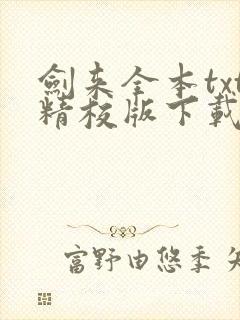 劍来全本txt
精校版下載
富野由悠季